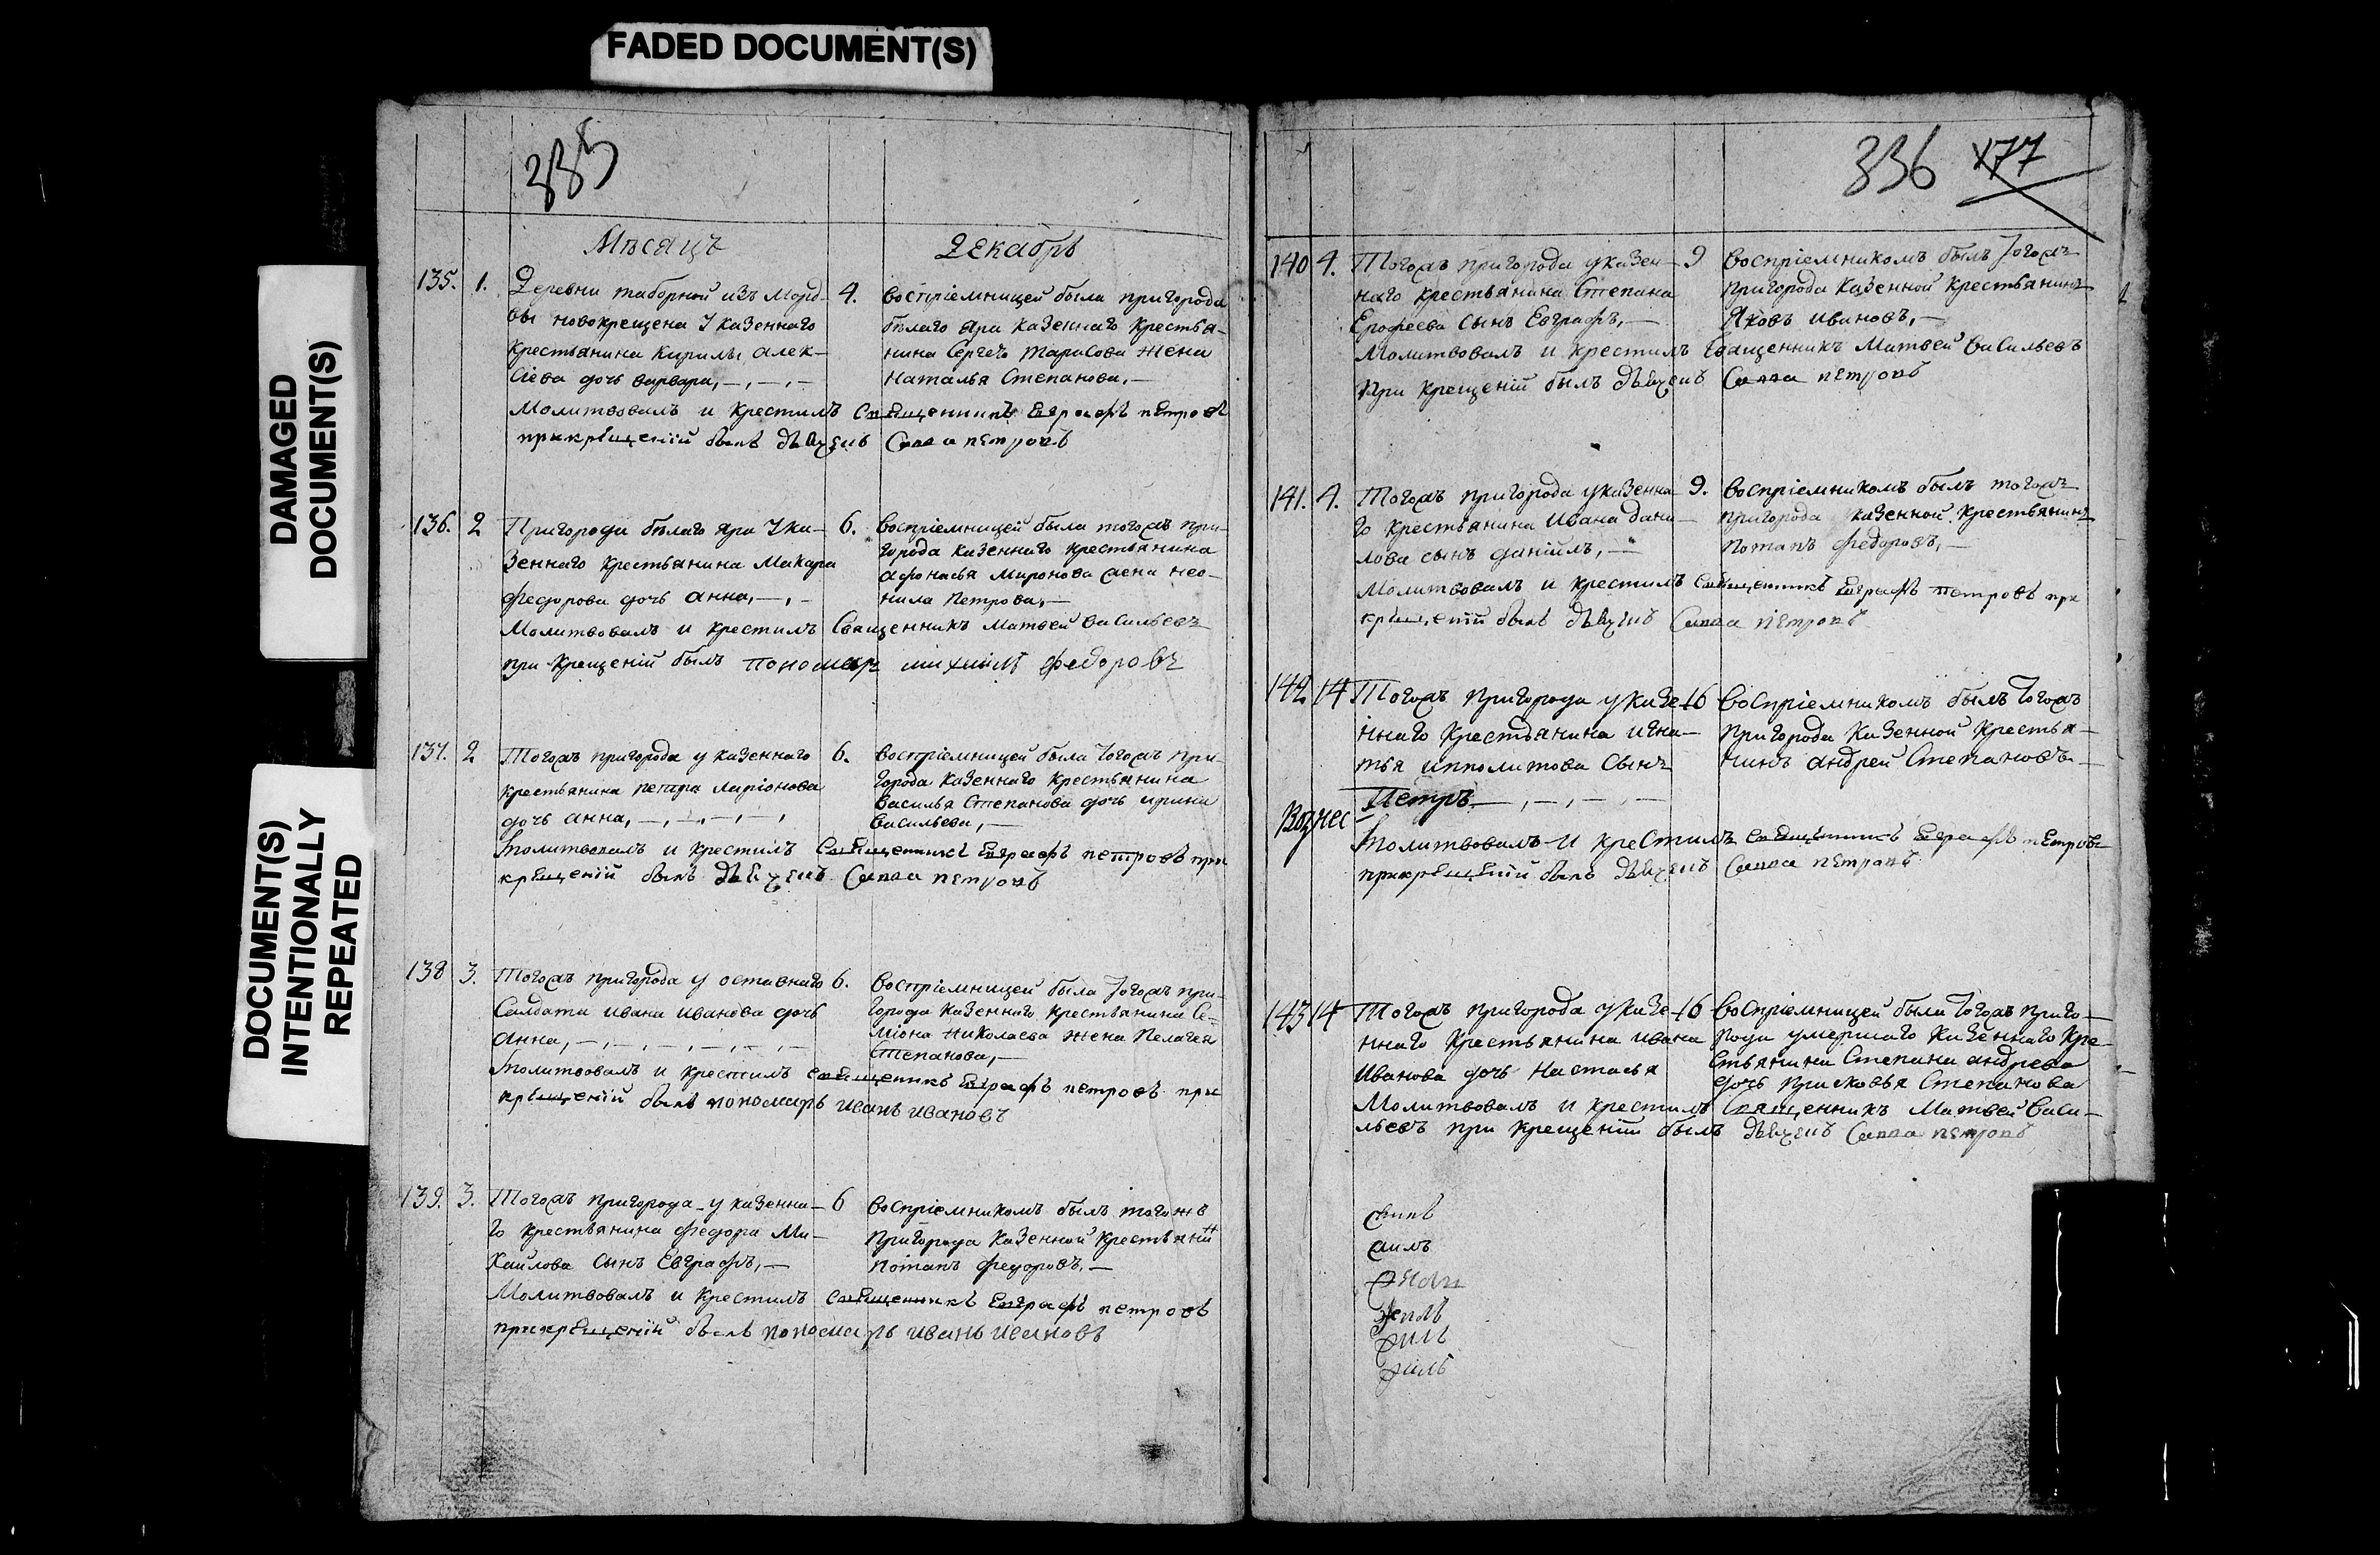 FADED DOCUMENT(S)
DAMAGED
DOCUMENT(S)
DOCUMENT(S)
INTENTIONALLY
REPEATED
335
Мѣсяцъ Декабрь
135. 1. Деревни таборной изъ Морд- 4. Воспріемницей была пригорода
вы новокрещена Указеннаго бѣлаго Яра казеннаго крестья-
крестьянина Кирилы алек- нина Сергея Тарасова жена
сіева дочь варвара, Наталья Степанова,
Молитвовалъ и крестилъ Священникъ Евграфъ петровъ
прикрещеніи былъ дьячекъ Савва петровъ
136. 2 Пригорода бѣлаго яра Ука- 6. Воспріемницей была тогожъ при-
зеннаго крестьянина Макара города казеннаго крестьянина
федорова дочь анна, афонасья Миронова жена нео-
нила Петрова,
Молитвовалъ и крестилъ Священникъ Матвей Васильевъ
при крещеніи былъ пономарь михаилъ федоровъ
137. 2 Тогожъ пригорода у казеннаго 6. Воспріемницей была тогожъ при-
крестьянина петра ларіонова города казеннаго крестьянина
дочь анна, Василья Степанова дочь ирина
Васильева,
Молитвовалъ и крестилъ Священникъ Евграфъ петровъ при
крещеніи былъ дьячекъ Савва петровъ
138 3. Тогожъ пригорода у оставнаго 6. Воспріемницей была тогожъ при-
Салдата ивана иванова дочь города казеннаго крестьянина Се-
анна, міона Николаева жена Пелагея
Степанова,
Молитвовалъ и крестилъ священникъ Евграфъ петровъ при
крещеніи былъ пономарь иванъ ивановъ
139. 3. Тогожъ пригорода у казенна- 6 Воспріемникомъ былъ тогожъ
го крестьянина федора Ми- пригорода казенной крестьянинъ
хайлова сынъ Евграфъ, потапъ федоровъ,
Молитвовалъ и крестилъ священникъ Евграфъ петровъ
прикрещеніи былъ пономарь иванъ ивановъ
336 177
140 4. Тогожъ пригорода указен- 9 Воспріемникомъ былъ тогожъ
наго крестьянина Степана пригорода казенной крестьянинъ
Ерофеева сынъ Евграфъ, Яковъ ивановъ,
Молитвовалъ и крестилъ Священникъ Матвей Васильевъ
При крещеніи былъ дьячекъ Савва петровъ
141. 4. Тогожъ пригорода указенна- 9. Воспріемникомъ былъ тогожъ
го крестьянина ивана дани- пригорода казенной крестьянинъ
лова сынъ даніилъ, Потапъ федоровъ,
Молитвовалъ и крестилъ Священникъ Евграфъ петровъ при
крещеніи былъ дьячекъ Савва петровъ
142 14 Тогожъ пригорода указе- 16 Воспріемникомъ былъ тогожъ
ннаго крестьянина игна- пригорода казенной крестья-
тья ипполитова Сынъ нинъ андрей Степановъ
Петръ
Вознес
Молитвовалъ и крестилъ священникъ Евграфъ петровъ
прикрещеніи былъ дьячекъ Савва петровъ
143 14 Тогожъ пригорода указе- 16 Воспріемницей была тогожъ приго-
ннаго крестьянина ивана рода умершаго казеннаго кре-
иванова дочь Настасья стьянина Степана андрева
дочь прасковья Степанова
Молитвовалъ и крестилъ Священникъ Матвей Васи-
льевъ при крещеніи былъ дьячекъ Савва петровъ